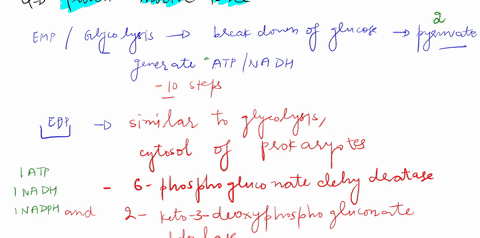 EMP / Glycolysis → break down of glucose → 2 pyruvate
generate ATP/NADH
- 10 steps
EDP → similar to glycolysis,
cytosol of prokaryotes
1 ATP
1 NADH - 6-phosphogluconate dehydratase
1 NADPH and 2-keto-3-deoxyphosphogluconate